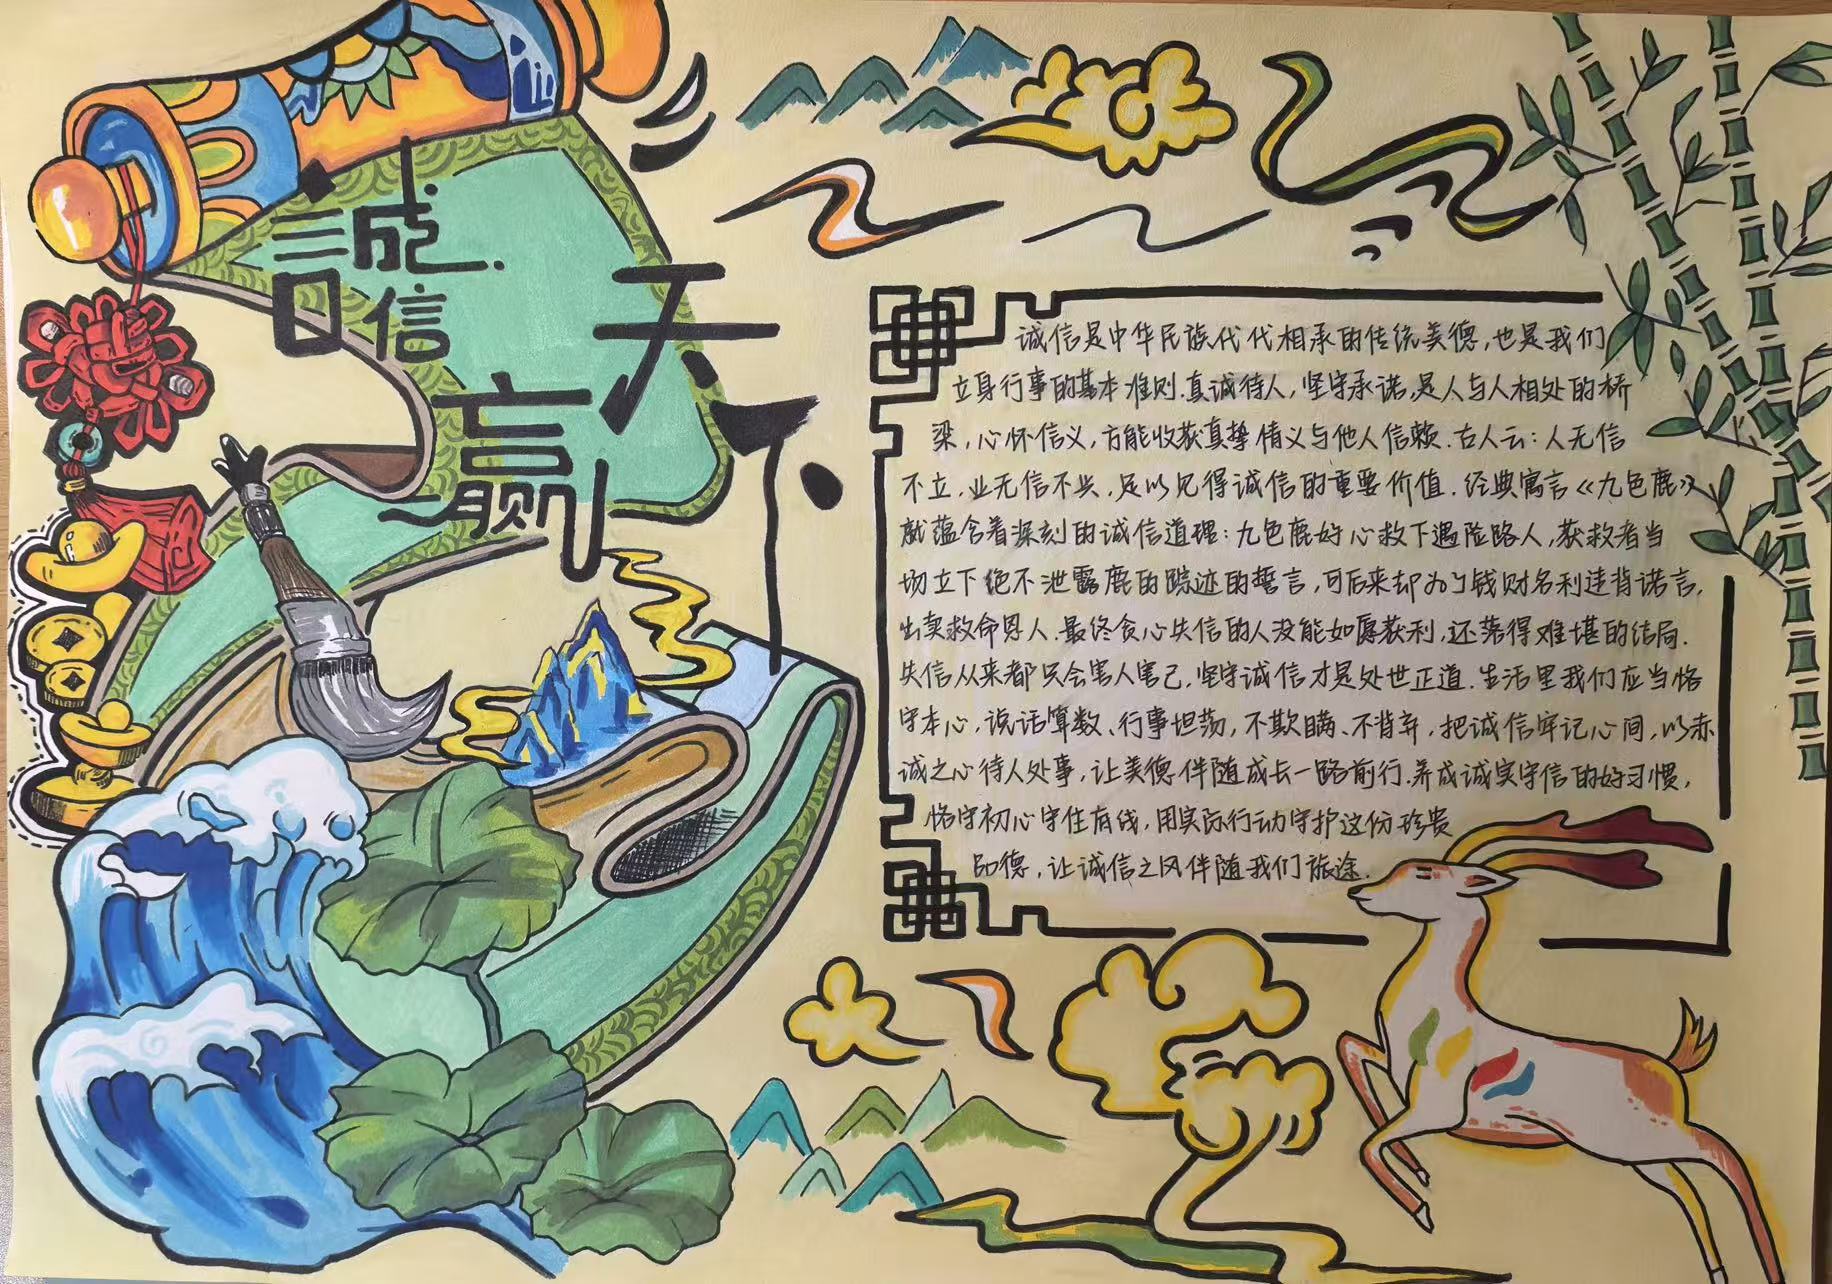 誠信
赢
天下
诚信是中华民族代代相承的传统美德，也是我们
立身行事的基本准则.真诚待人，坚守承诺，是人与人相处的桥
梁，心怀信义，方能收获真挚情义与他人信赖.古人云：人无信
不立，业无信不兴，足以见得诚信的重要价值.经典寓言《九色鹿》
就蕴含着深刻的诚信道理：九色鹿好心救下遇险路人，获救者当
场立下绝不泄露鹿的踪迹的誓言，可后来却为了钱财名利违背诺言，
出卖救命恩人.最终贪心失信的人没能如愿获利，还落得难堪的结局.
失信从来都只会害人害己，坚守诚信才是处世正道.生活里我们应当恪
守本心，说话算数、行事坦荡，不欺瞒、不背弃，把诚信牢记心间，以赤
诚之心待人处事，让美德伴随成长一路前行.养成诚实守信的好习惯，
恪守初心守住底线，用实际行动守护这份珍贵
品德，让诚信之风伴随我们旅途.